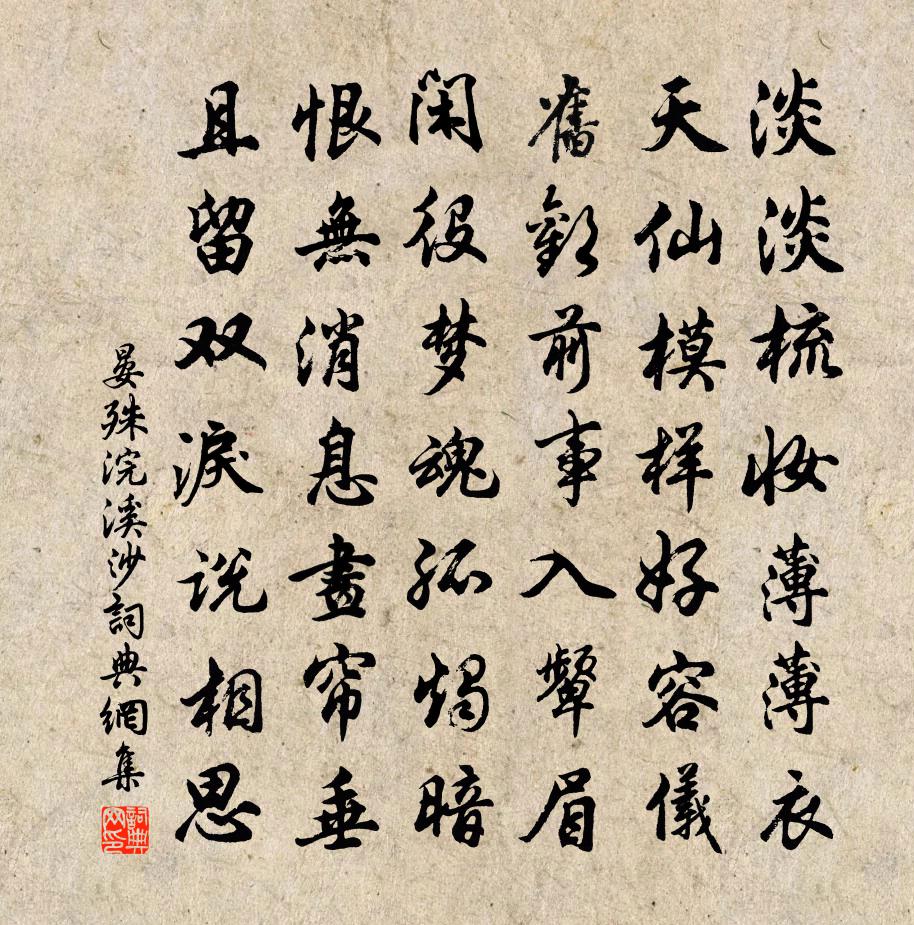 淡淡梳妆薄薄衣
天仙模样好容儀
舊歡前事入顰眉
闲役梦魂孤烛暗
恨無消息畫帘垂
且留双淚说相思
晏殊浣溪沙詞典網集
詞典网印